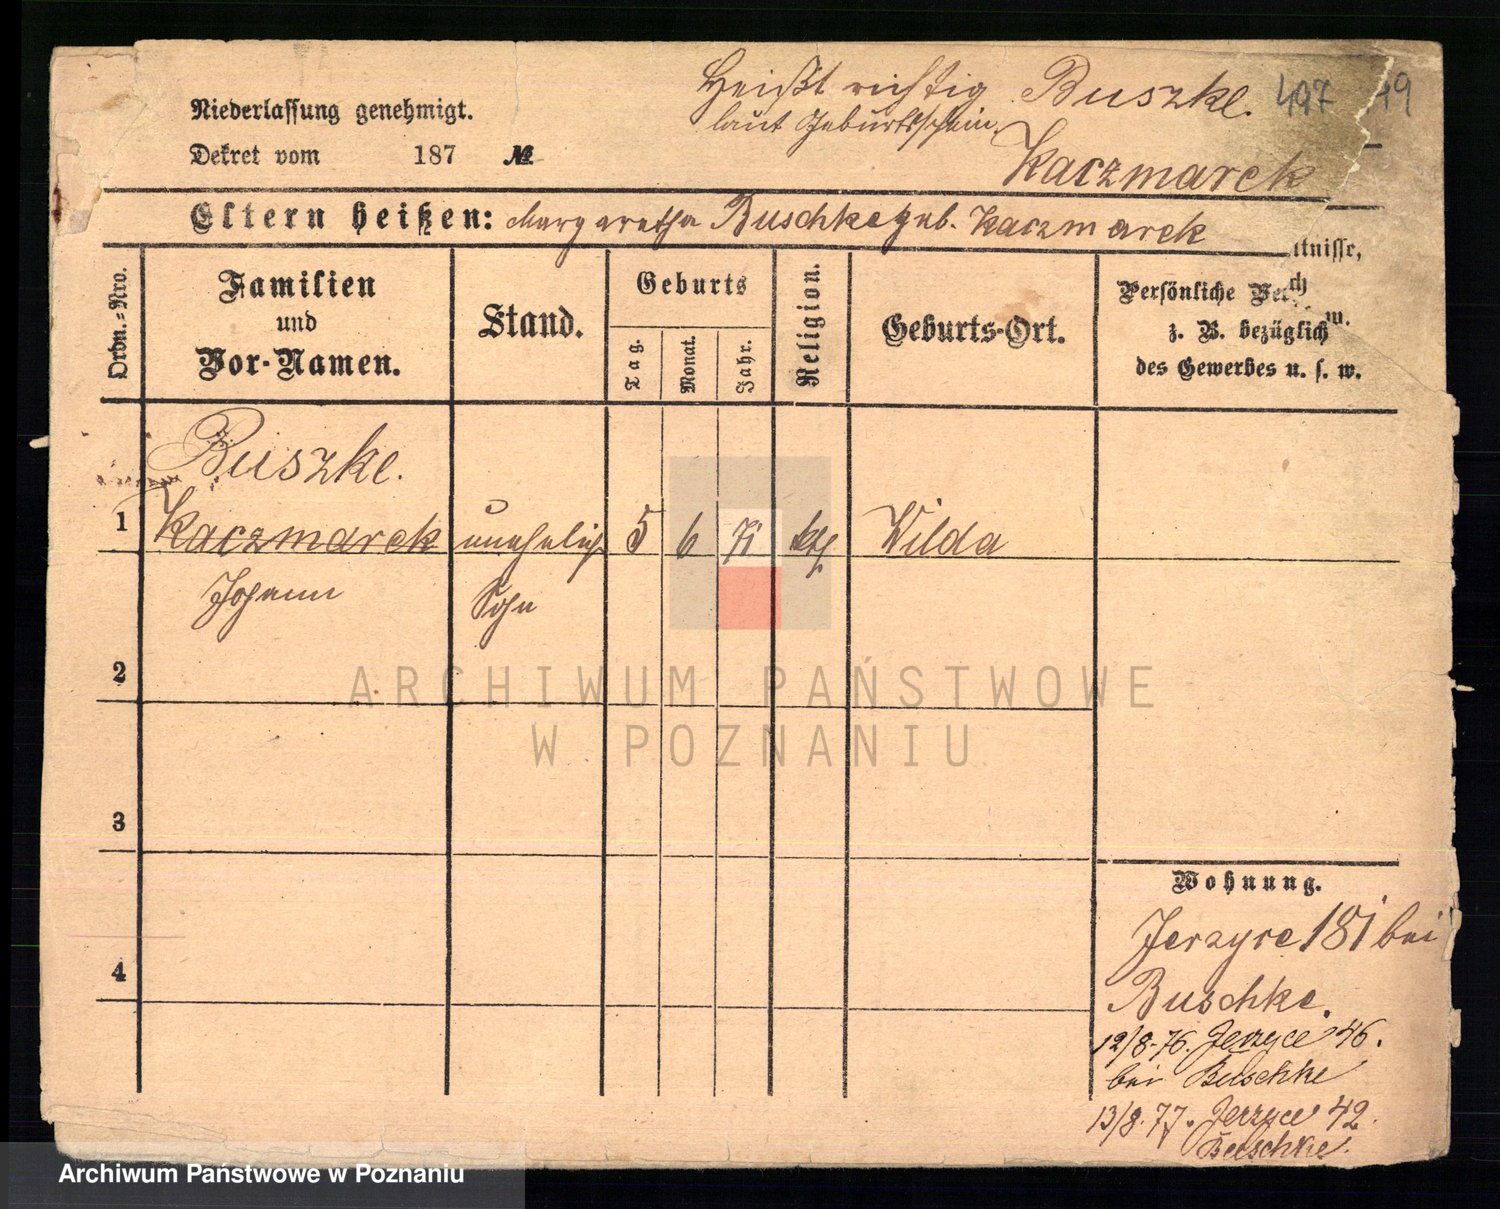 Heißt richtig Buszke. 497 49
laut Geburtsschein.
Niederlassung genehmigt.
Dekret vom 187 №
Kaczmarek
Eltern heißen: Margaretha Buschke geb. Kaczmarek
tnisse,
Ordn.-Nro.
Familien
und
Vor-Namen.
Stand.
Geburts
Tag.
Monat.
Jahr.
Religion.
Geburts-Ort.
Persönliche Ver ch
z. B. bezüglich m.
des Gewerbes u. s. w.
Buszke.
1 Kaczmarek unehelich 5 6 71 kth Wilda
Johann Sohn
2
ARCHIWUM PAŃSTWOWE
W POZNANIU
3
Wohnung.
Jerzyce 181 bei
Buschke.
4
12/8.76. Jerzyce 46.
bei Buschke
13/8.77. Jerzyce 42.
Buschke.
Archiwum Państwowe w Poznaniu